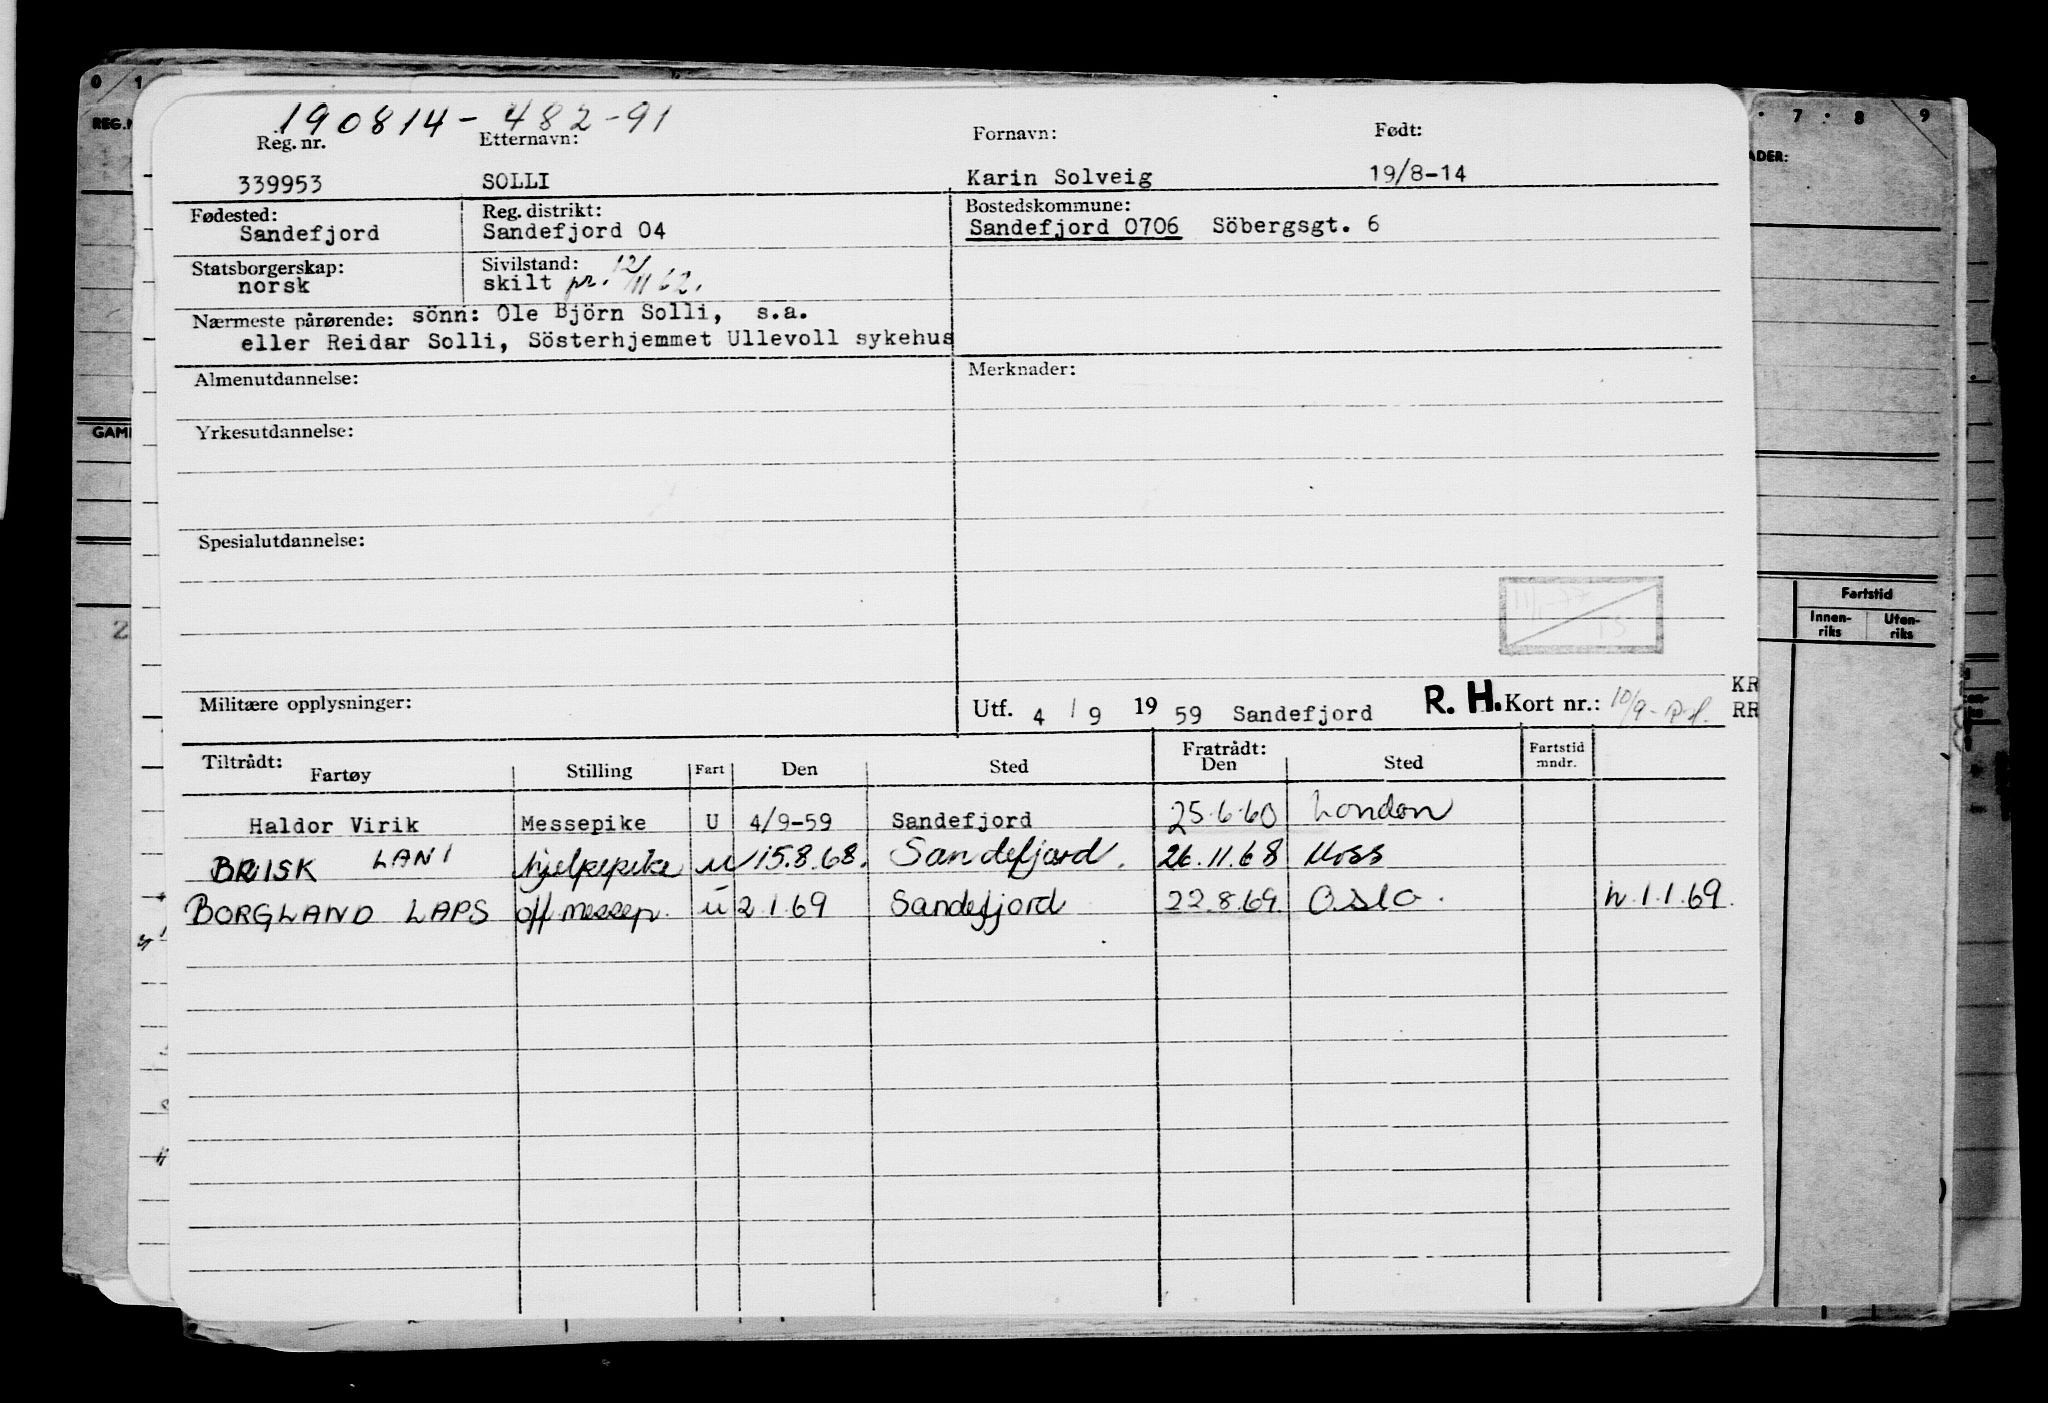 190814-482-91
Reg. nr. Etternavn: Fornavn: Født:
339953 SOLLI Karin Solveig 19/8-14
Fødested: Reg. distrikt: Bostedskommune:
Sandefjord Sandefjord 04 Sandefjord 0706 Söbergsgt. 6
Statsborgerskap: Sivilstand:
norsk skilt pr. 12/11 62.
Nærmeste pårørende: sönn: Ole Björn Solli, s.a.
eller Reidar Solli, Sösterhjemmet Ullevoll sykehus
Almenutdannelse: Merknader:
Yrkesutdannelse:
Spesialutdannelse:
Militære opplysninger: Utf. 4 / 9 19 59 Sandefjord R. H. Kort nr.: 10/9- KR
RR
Tiltrådt: Fratrådt:
Fartøy Stilling Fart Den Sted Den Sted Fartstid mndr.
Haldor Virik Messepike U 4/9-59 Sandefjord 25.6.60 London
BRISK LANI hjelpepike u 15.8.68. Sandefjord. 26.11.68 Moss
BORGLAND LAPS off messep. u 2.1.69 Sandefjord 22.8.69. Oslo. h.1.1.69.
0 1
REG.N
GAM
2
7 . 8 9
ADER:
Fartstid
Innen-
riks
Uten-
riks